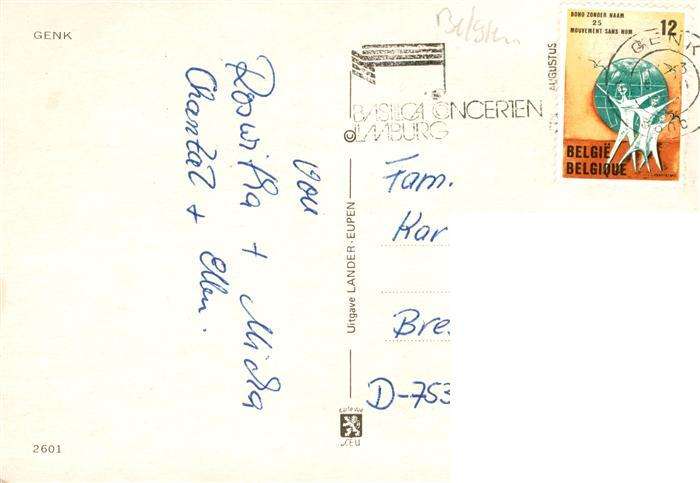 GENK
Belgien
BOND ZONDER NAAM
25
MOUVEMENT SANS NOM
12
BELGIË
BELGIQUE
GENK
AUGUSTUS
BASILICA CONCERTEN
LIMBURG
Von
Roswitha + Micha
Chantal + Ellen.
Fam.
Kar
Bre
D-753
Uitgave LANDER-EUPEN
CEU
2601